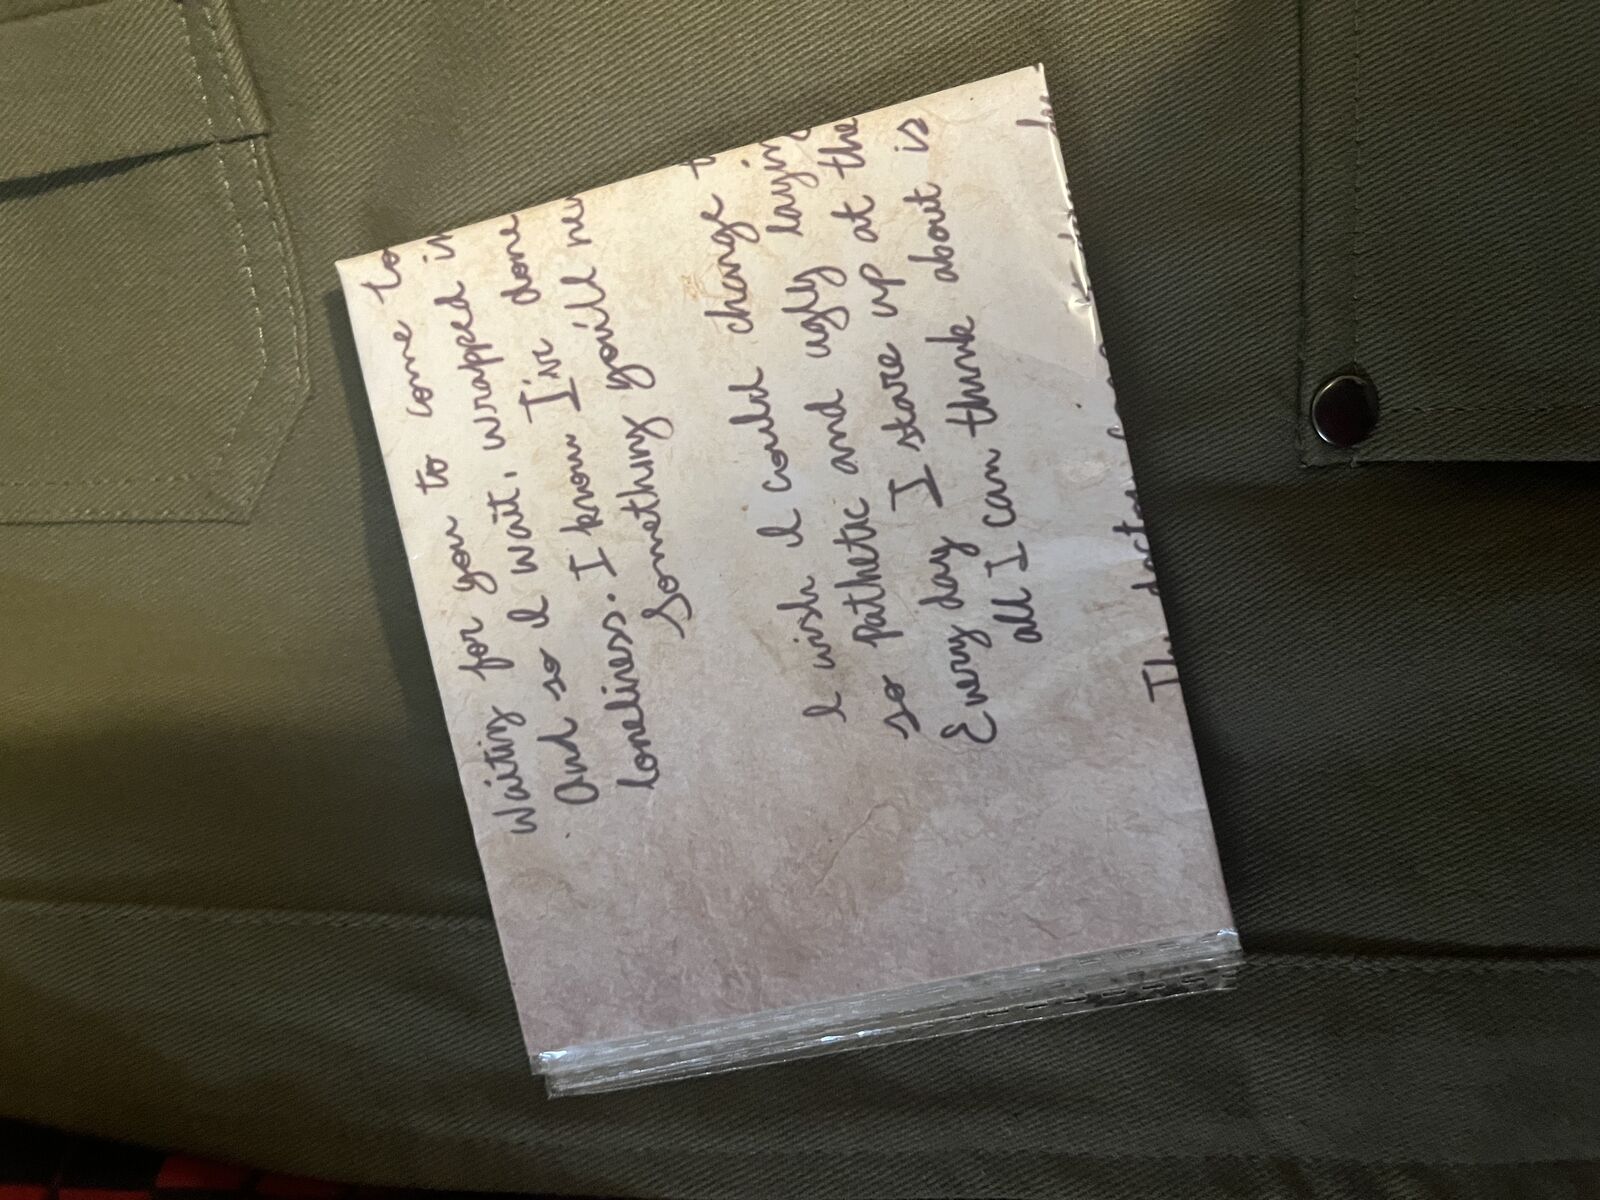 Waiting for you to come to
And so I wait, wrapped in
loneliness. I know I've done
Something you'll nev
I wish I could change t
so pathetic and ugly laying
Every day I stare up at the
all I can think about is
The doctor